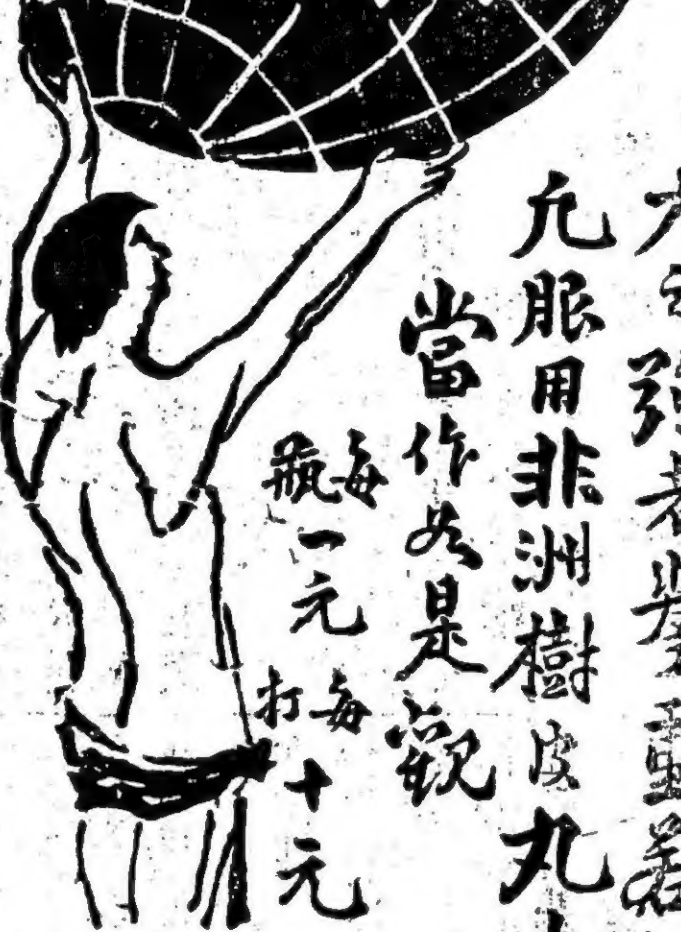 强者舉重若
凡服用非洲樹皮丸
當作如是觀
每瓶一元
每打十元